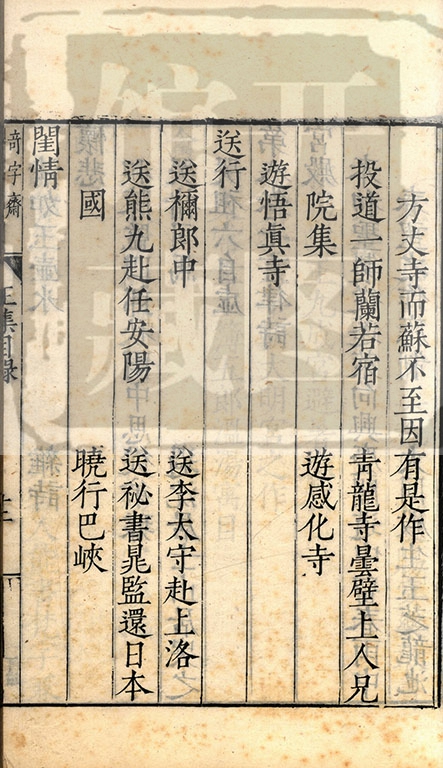 方丈寺而蘇不至因有是作
投道一師蘭若宿　青龍寺曇壁上人兄
院集　遊感化寺
遊悟眞寺
送行
送禰郎中　送李太守赴上洛
送熊九赴任安陽　送祕書晁監還日本
國　曉行巴峽
閨情
奇字齋
王集目錄